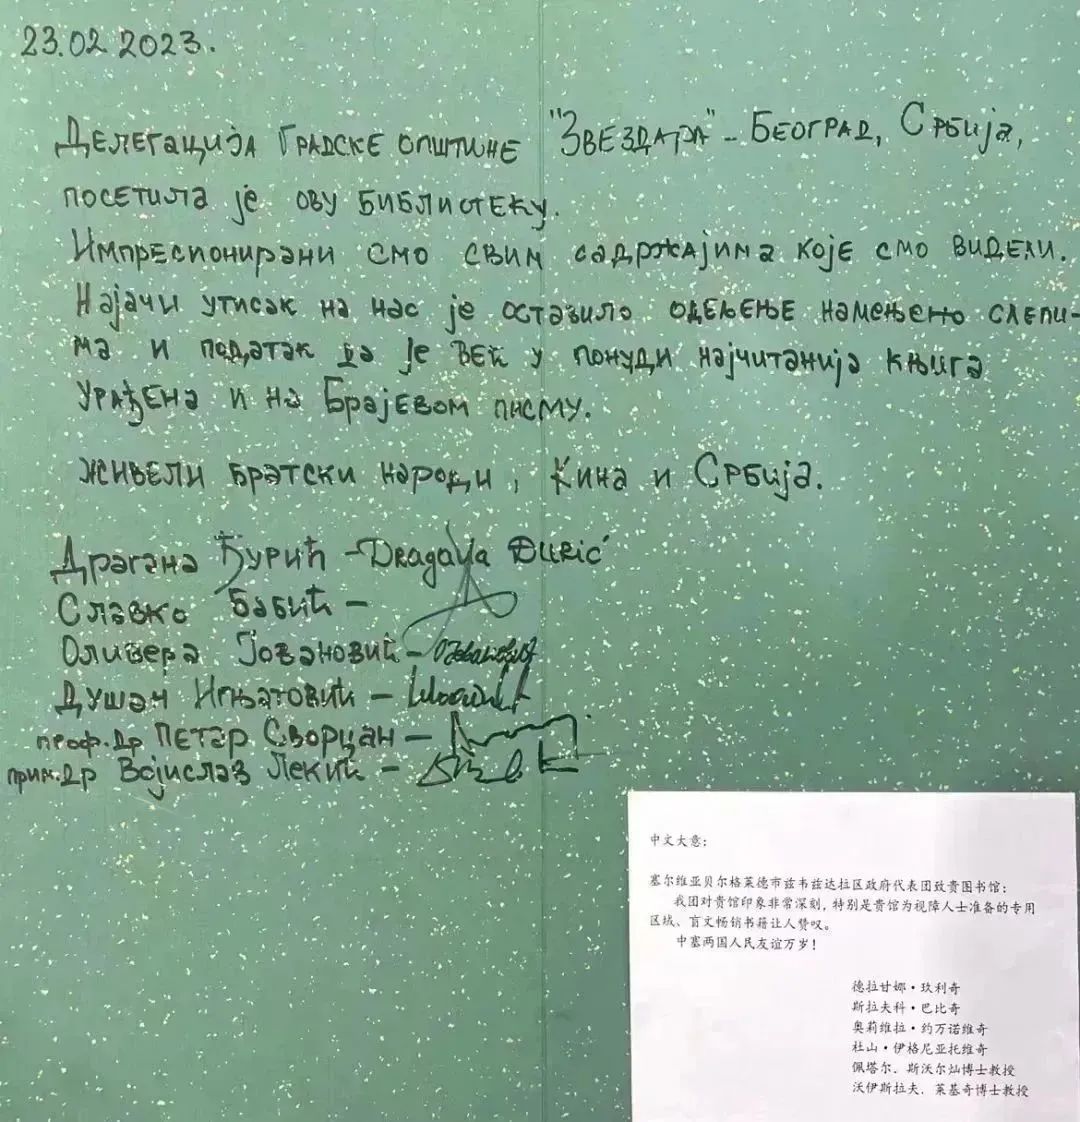 23.02.2023.
Делегација Градске општине "Звездара" - Београд, Србија,
посетила је ову библиотеку.
Импресионирани смо свим садржајима које смо видели.
Најачи утисак на нас је оставило одељење намењено слепи-
ма и податак да је већ у понуди најчитанија књига
урађена и на Брајевом писму.
Живели братски народи, Кина и Србија.
Драгана Ђурић - Dragana Đurić
Славко Бабић -
Оливера Јовановић -
Душан Игњатовић -
проф. др Петар Сворцан -
прим. др Војислав Лекић -
中文大意:
塞尔维亚贝尔格莱德市兹韦兹达拉区政府代表团致贵图书馆:
我团对贵馆印象非常深刻,特别是贵馆为视障人士准备的专用
区域、盲文畅销书籍让人赞叹。
中塞两国人民友谊万岁!
德拉甘娜·玖利奇
斯拉夫科·巴比奇
奥莉维拉·约万诺维奇
杜山·伊格尼亚托维奇
佩塔尔.斯沃尔灿博士教授
沃伊斯拉夫.莱基奇博士教授